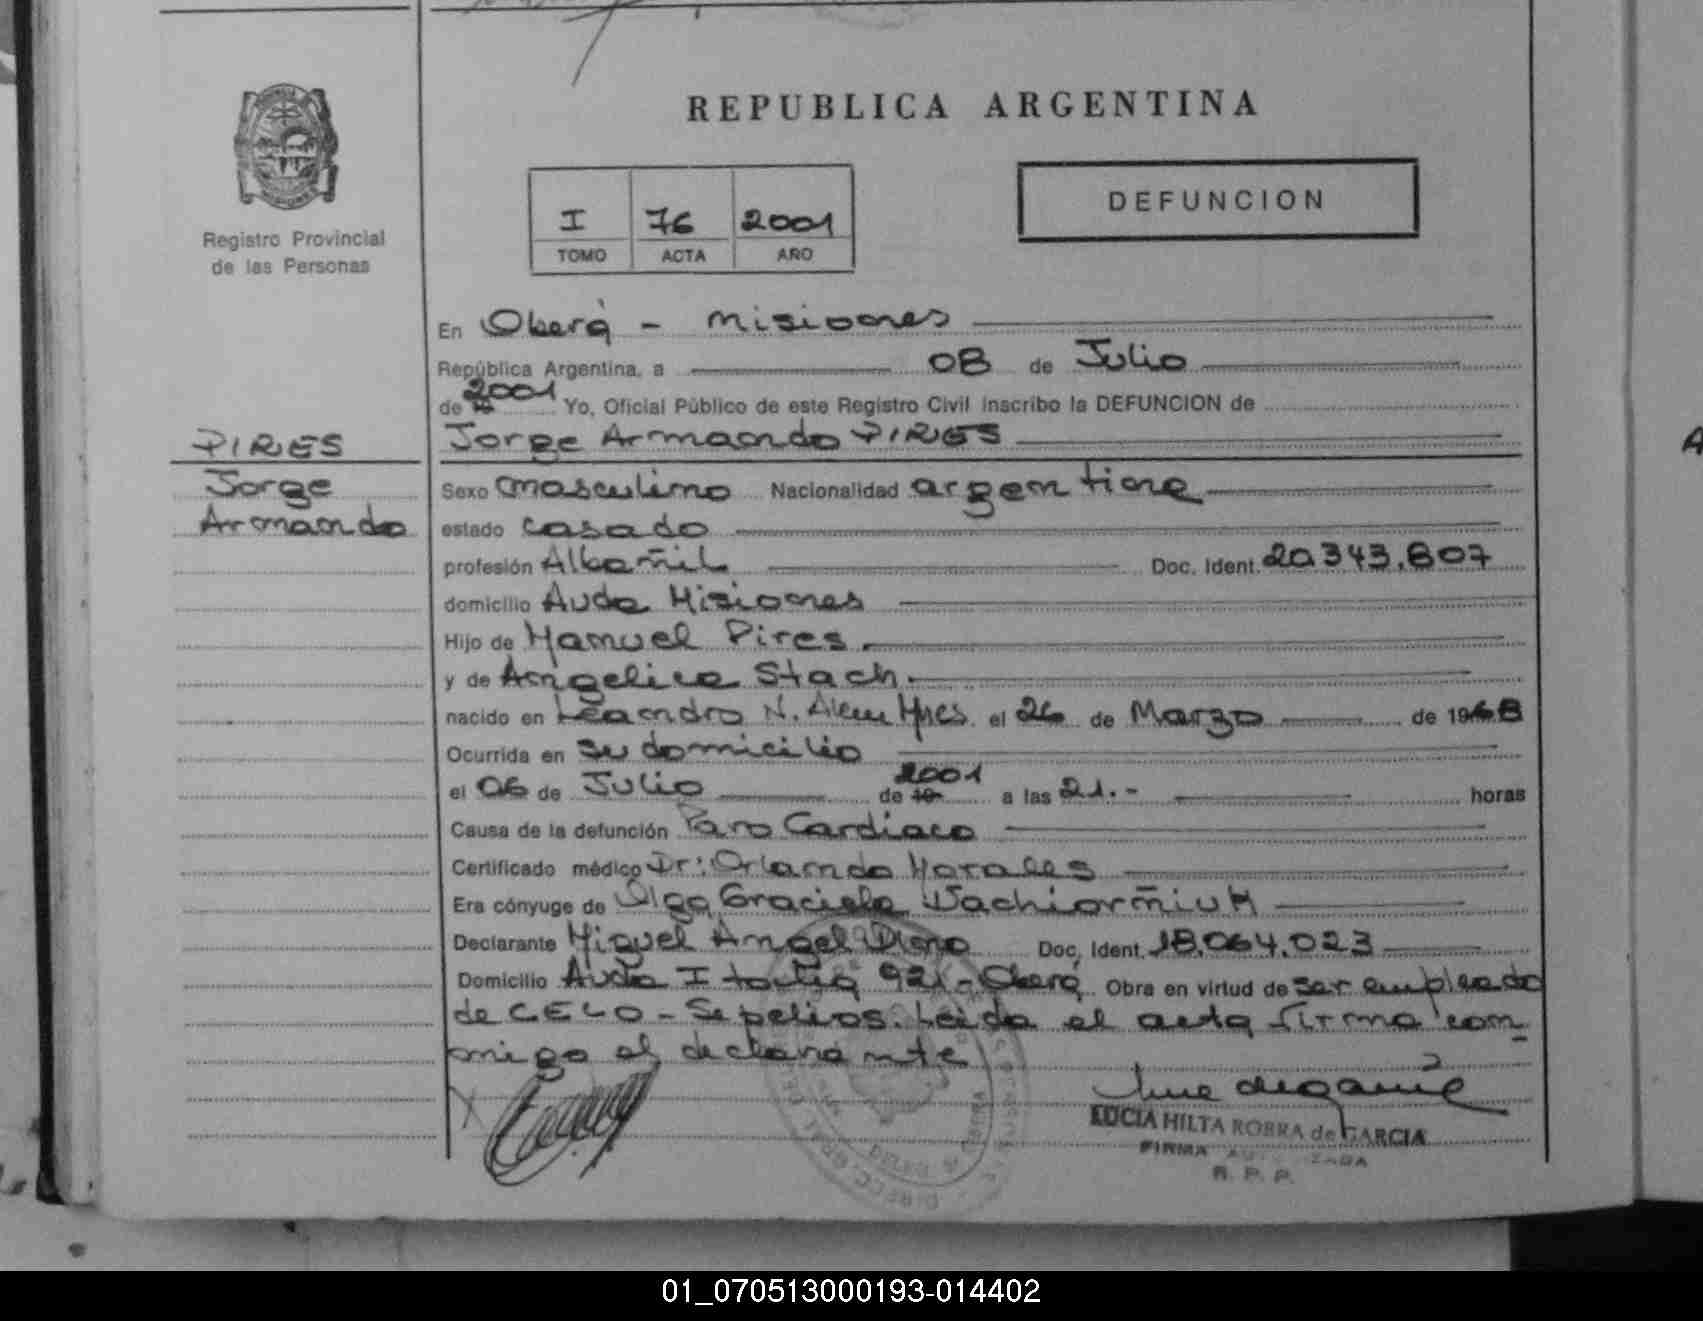 REPUBLICA ARGENTINA
Registro Provincial
de las Personas
I 76 2001
TOMO ACTA AÑO
DEFUNCION
En Oberá - Misiones
República Argentina, a 08 de Julio
de 2001 Yo, Oficial Público de este Registro Civil inscribo la DEFUNCION de
PIRES
Jorge
Armando
Jorge Armando PIRES
Sexo masculino Nacionalidad argentina
estado casado
profesión Albañil Doc. Ident. 20.343.807
domicilio Avda Misiones
Hijo de Manuel Pires
y de Angelica Stach
nacido en Leandro N. Alem Mnes. el 26 de Marzo de 1968
Ocurrida en su domicilio
el 06 de Julio de 2001 a las 21.- horas
Causa de la defunción Paro Cardiaco
Certificado médico Dr: Orlando Morales
Era cónyuge de Olga Graciela
Declarante Miguel Angel Doc. Ident. 18.064.023
Domicilio Avda Italia 921 - Oberá Obra en virtud de ser empleado
de CELO - Sepelios. Leída el acta firma con
migo el declarante
LUCIA HILTA ROBRA de GARCIA
FIRMA
R. P. P.
01_070513000193-014402